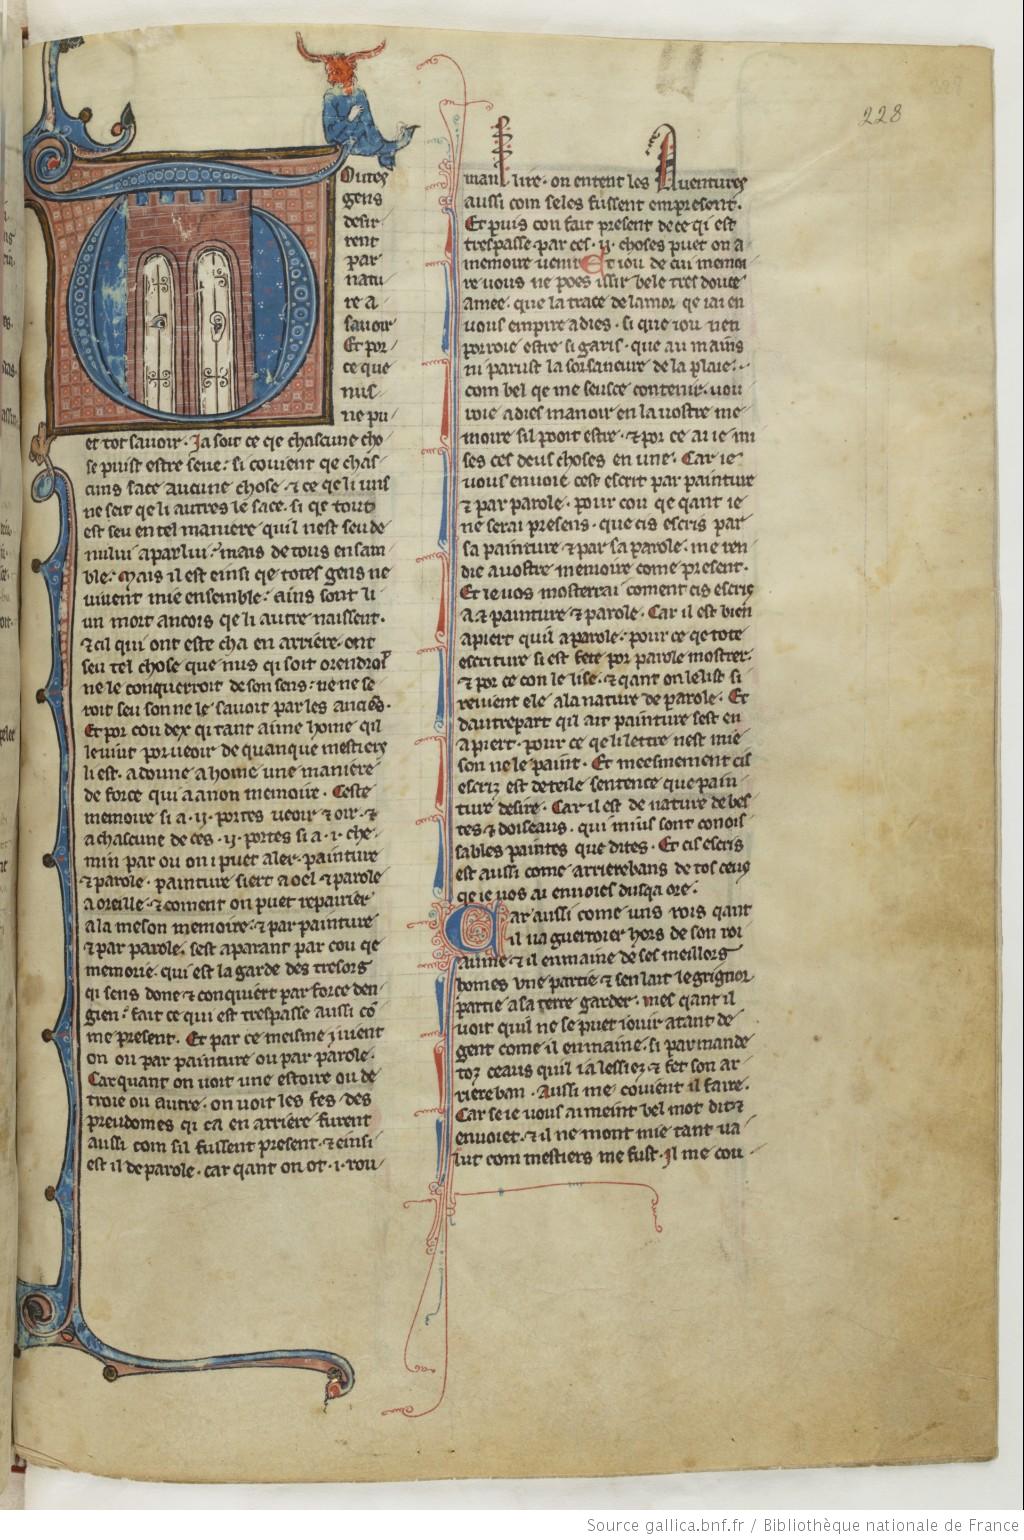 228
Outes
gens
desir
rent
par
natu
re a
sauoir
Et por
ce que
nus
ne pu
et tot sauoir. Ja soit ce qe chascune cho
se puist estre seue: si couient qe chas
cuns sace aucune chose. & ce qe li uns
ne seit qe li autres le sace. si qe tout
est seu en tel maniere quil nest seu de
nului a par lui: mais de tous ensam
ble: Mais il est einsi qe totes gens ne
viuent mie ensemble: ains sont li
un mort ancois qe li autre naissent.
& cil qui ont este cha en arriere. ont
seu tel chose que nus qi soit orendroit
ne le conquerroit de son sens: ne ne se
roit seu son ne le sauoit par les
Et por cou dex qi tant aime home qil
le uiut porueoir de quanque mestiers
li est. a donne a home une maniere
de force qui a a non memoire. Ceste
memoire si a .ij. portes ueoir & oir. &
a chascune de ces .ij. portes si a .i. che
min par ou on i puet aler. painture
& parole. painture siert a oel & parole
a oreille. & coment on puet repairier
a la meson memoire. & par painture
& par parole. sest aparant par cou qe
memorie. qui est la garde des tresors
qi sens done & conquiert par force den
gien: fait ce qui est trespasse aussi co
me present. Et par ce meisme i uient
on ou par painture ou par parole.
Car quant on uoit une estoire ou de
troie ou autre. on uoit les fes des
preudomes qi ca en arriere furent
aussi com sil fussent present. & einsi
est il de parole. car qant on ot .i. rou
man lire. on entent les Auentures
aussi com seles fussent em present.
Et puis con fait present de ce qi est
trespasse par ces .ij. choses puet on a
memoire uenir Et iou de cui memoi
re uous ne poes issir bele tres douce
amee. que la trace de lamor qe iai en
uous empire adies. si que iou nen
porroie estre si garis. que au mains
ni parust la sorsaneure de la plaie:
com bel qe me seusce contenir. uou
roie adies manoir en la uostre me
moire sil pooit estre. & por ce ai ie mi
ses ces deus choses en une. Car ie
uous enuoie cest escrit par painture
& par parole. pour cou qe qant ie
ne serai presens. que cis escris par
sa painture & par sa parole. me ren
die a uostre memoire come present.
Et ie uos mosterrai coment cis escris
a & painture & parole. Car il est bien
apiert quil a parole: pour ce qe tote
escriture si est fete por parole mostrer.
& por ce con le lise. & qant on le list si
reuient ele a la nature de parole. Et
dautrepart qil ait painture sest en
apiert. pour ce qe li lettre nest mie
son ne le paint. Et meesmement cis
escriz est de teile sentence que pain
ture desire. Car il est de nature de bes
tes & doiseaus. qui mius sont conois
sables paintes que dites. Et cis escris
est aussi come arrierebans de tos ceus
qe ie uos ai enuoies dusqa ore:
Car aussi come uns rois qant
il ua guerroier hors de son roi
aume. & il en maine de ses meillors
homes une partie & sen lait le grignor
partie a sa terre garder. mes qant il
uoit quil ne se puet iouir a tant de
gent come il en maine. si par mande
toz ceaus quil i a lessiez. & fet son ar
riereban. Aussi me couient il faire.
Car se ie uous ai meint bel mot dit &
enuoiet. & il ne mont mie tant ua
lut com mestiers me fust. Il me cou
Source gallica.bnf.fr / Bibliothèque nationale de France